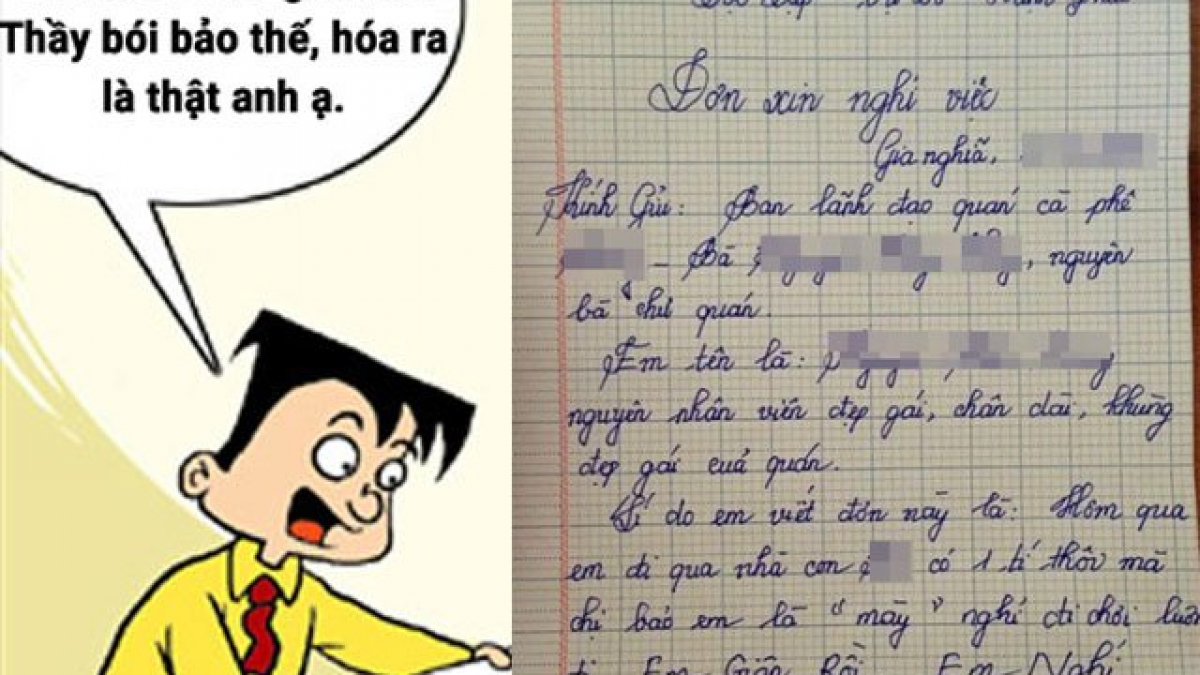 Thầy bói bảo thế, hóa ra
là thật anh ạ.
Đơn xin nghỉ việc
Gia nghĩa,
Kính Gửi: Ban lãnh đạo quán cà phê
_ Bà , nguyên
bà chủ quán.
Em tên là:
nguyên nhân viên đẹp gái, chân dài, khùng
đẹp gái của quán.
Lí do em viết đơn này là: Hôm qua
em đi qua nhà con có 1 tí thôi mà
chị bảo em là "mày" nghỉ đi chơi luôn
đi Em Giận Rồi Em Nghỉ